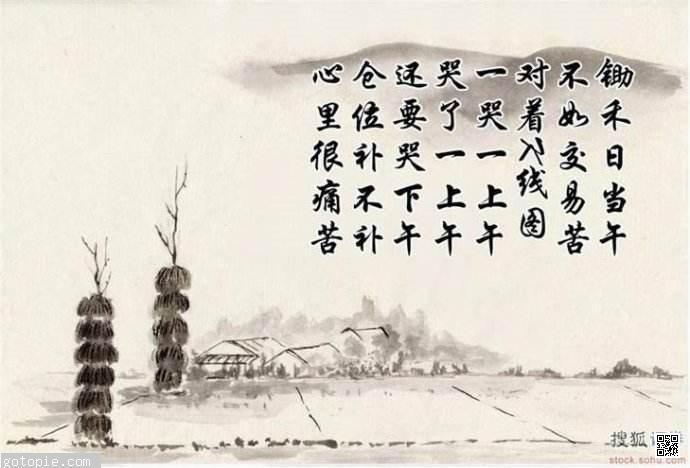 锄禾日当午
不如交易苦
对着K线图
一哭一上午
哭了一上午
还要哭下午
仓位补不补
心里很痛苦
搜狐
stock.sohu.com
gotopie.com